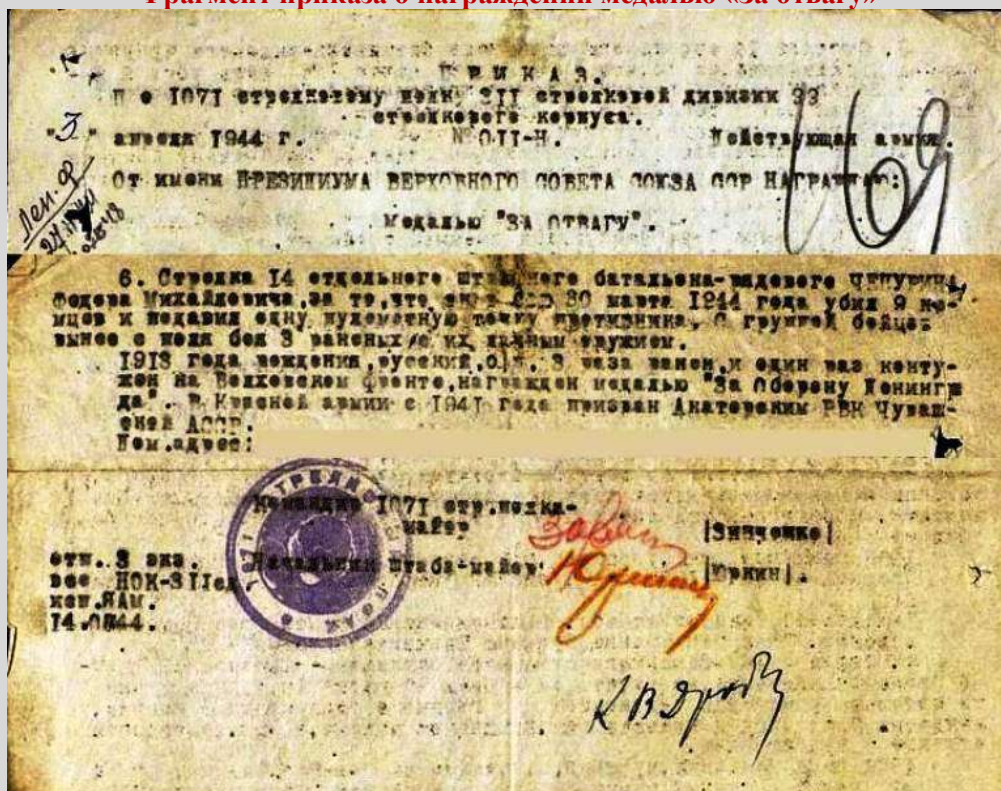 Фрагмент приказа о награждении медалью «За отвагу»
ПРИКАЗ.
П о 1071 стрелковому полку 311 стрелковой дивизии 99
стрелкового корпуса.
"3" апреля 1944 г. № 011-Н. Действующая армия.
От имени ПРЕЗИДИУМА ВЕРХОВНОГО СОВЕТА СОЮЗА ССР НАГРАЖДАЮ:
Медалью "ЗА ОТВАГУ".
169
6. Стрелка 14 отдельного штрафного батальона-рядового
Михайловича, за то, что 30 марта 1944 года убил 9 не-
мцев и подавил одну пулеметную точку противника, с группой бойцов
вынес с поля боя 3 раненых с их личным оружием.
1913 года рождения, русский, 3 раза ранен и один раз конту-
жен на Волховском фронте, награжден медалью "За Оборону Ленингра
да". В Красной армии с 1941 года призван РВК Чуваш-
ской АССР.
Дом.адрес:
Командир 1071 стр.полка-
майор |Зинченко|
Начальник штаба-майор |Юркин|.
отп. 3 экз.